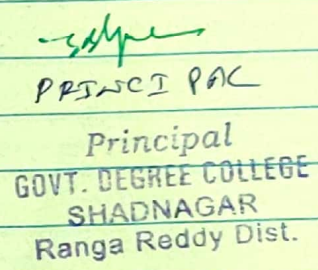 PRINCIPAL
Principal
GOVT. DEGREE COLLEGE
SHADNAGAR
Ranga Reddy Dist.